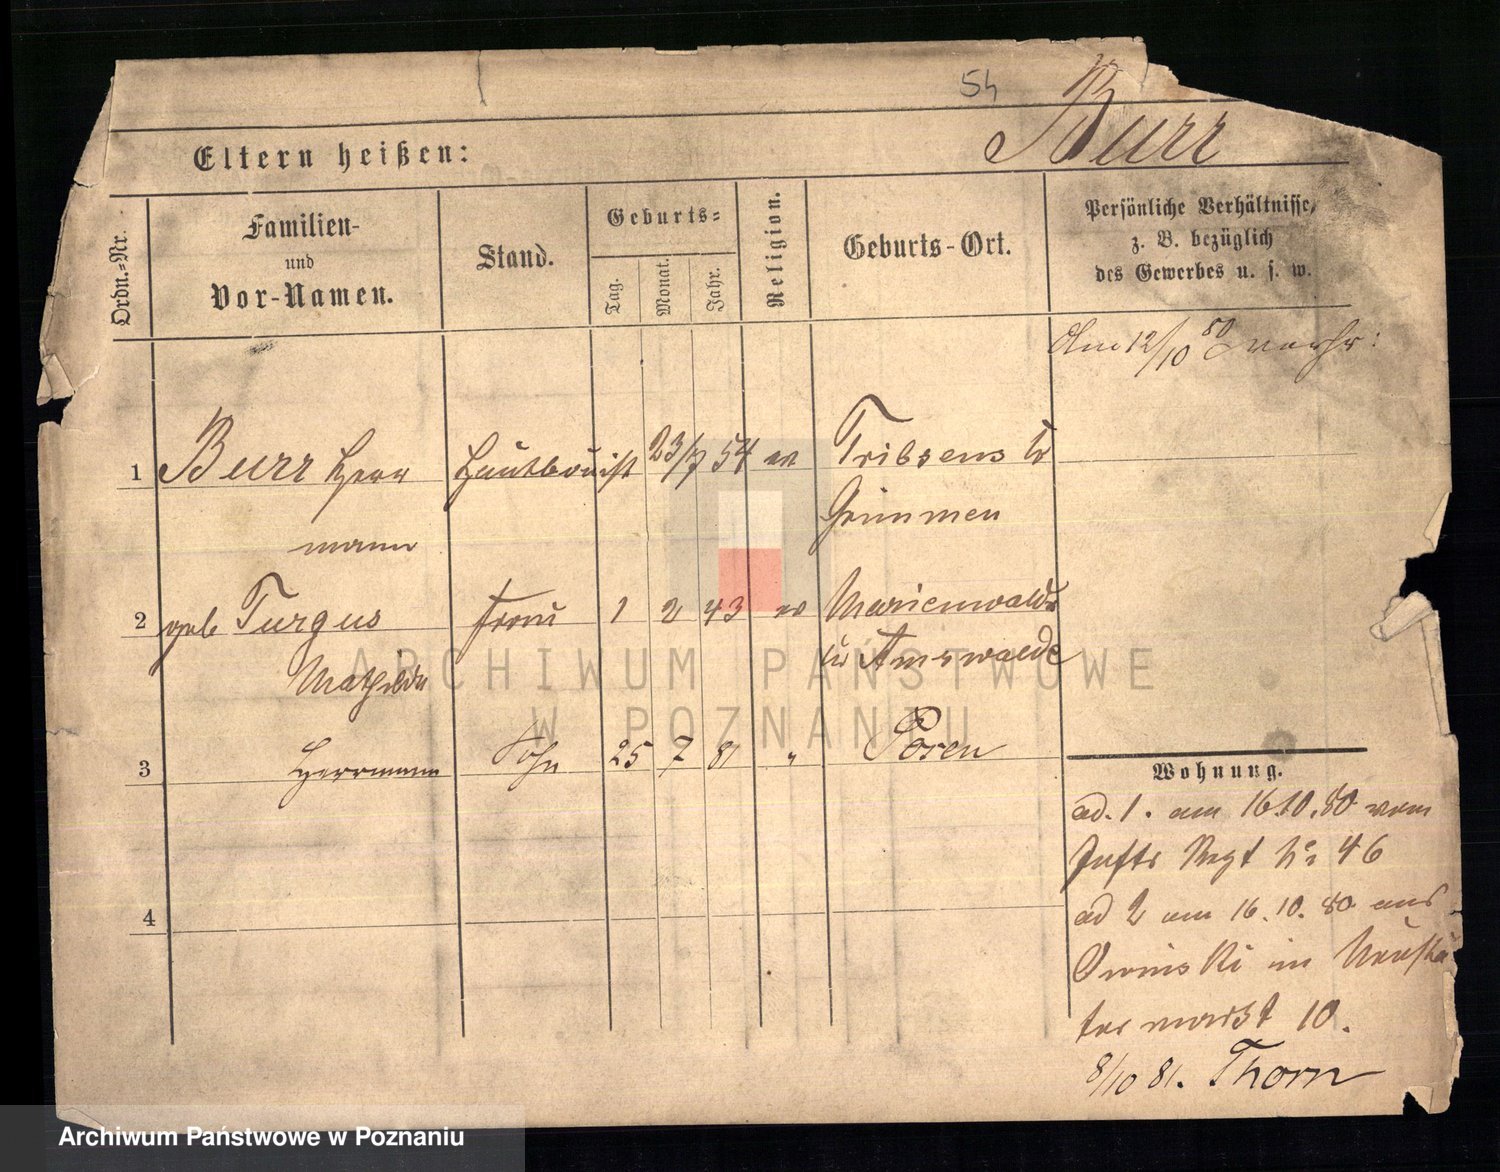 54
Burr
Eltern heißen:
Ordn.-Nr.
Familien-
und
Vor-Namen.
Stand.
Geburts-
Tag.
Monat.
Jahr.
Religion.
Geburts-Ort.
Persönliche Verhältnisse,
z. B. bezüglich
des Gewerbes u. s. w.
Am 12/10 80 verh:
1 Burr Herr Hautboist 23/7 54 ev Tribsens Kr
mann Grimmen
2 geb Turgus Frau 1 2 43 ev Marienwalde
Mathilde Kr Arnswalde
3 Herrmann Sohn 25 7 81 " Posen
4
Wohnung.
ad. 1. am 16.10.80 vom
Inftr Regt No 46
ad 2 am 16.10.80 aus
Owinski in Neustä
ter markt 10.
8/10 81. Thorn
ARCHIWUM PAŃSTWOWE
W POZNANIU
Archiwum Państwowe w Poznaniu